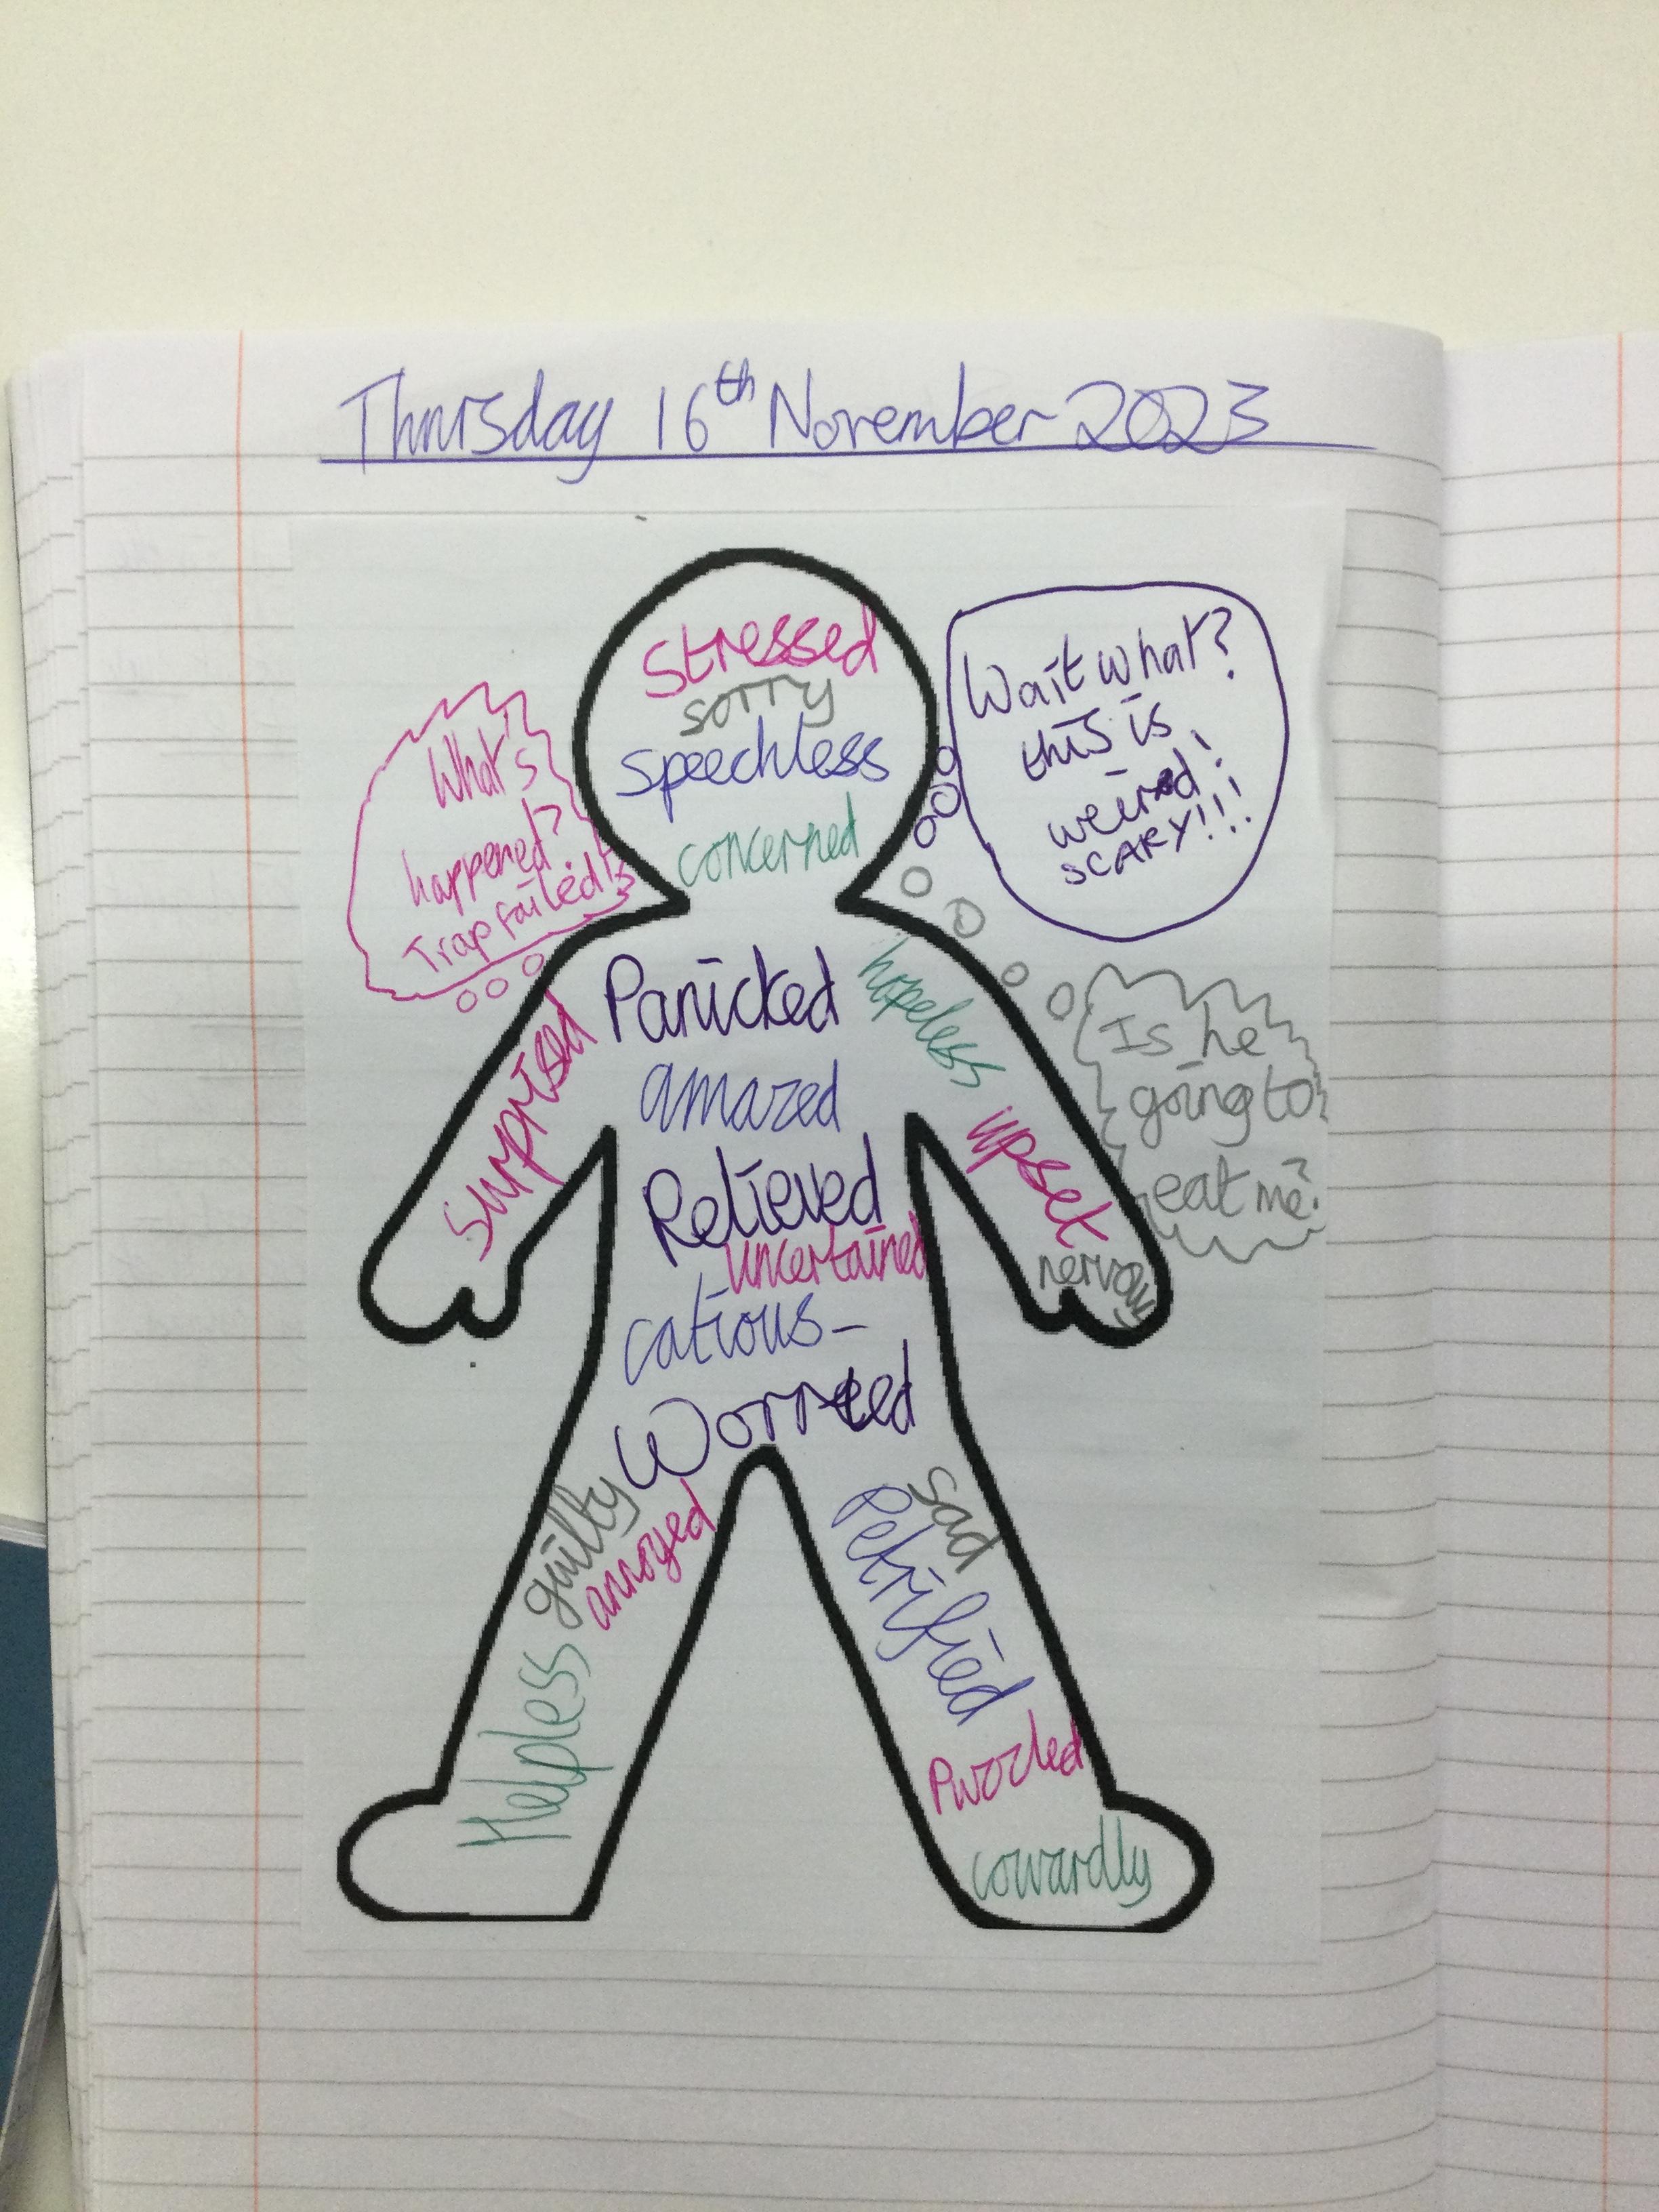 Thursday 16th November 2023
stressed
sorry
speechless
concerned
What's
happened?
Trap failed!
Wait what?
this is
weird!
SCARY!!!
Panicked
hopeless
surprised
amazed
Is he
going to
eat me?
upset
Relieved
uncertained
nervous
catious-
Worried
guilty
annoyed
sad
Petrified
Helpless
Puzzled
cowardly